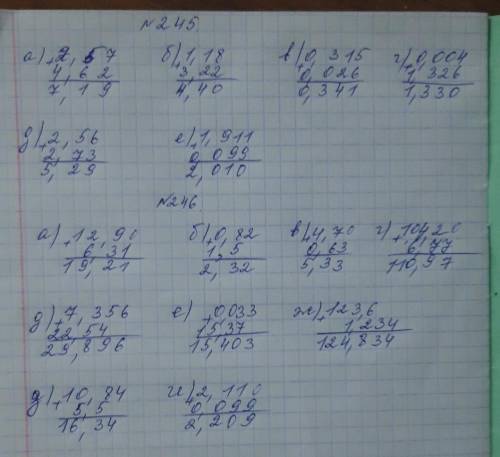 №245.
а) +2,57 б) +1,18 в) +0,315 г) +0,004
4,62 3,22 0,026 1,326
7,19 4,40 0,341 1,330
д) +2,56 е) +1,911
2,73 0,099
5,29 2,010
№246
а) +12,90 б) +0,82 в) +4,70 г) +104,20
6,31 1,5 0,63 6,77
19,21 2,32 5,33 110,97
д) +7,356 е) +0,033 ж) +123,6
22,54 15,37 1,234
29,896 15,403 124,834
д) +10,84 и) +2,110
5,5 0,099
16,34 2,209